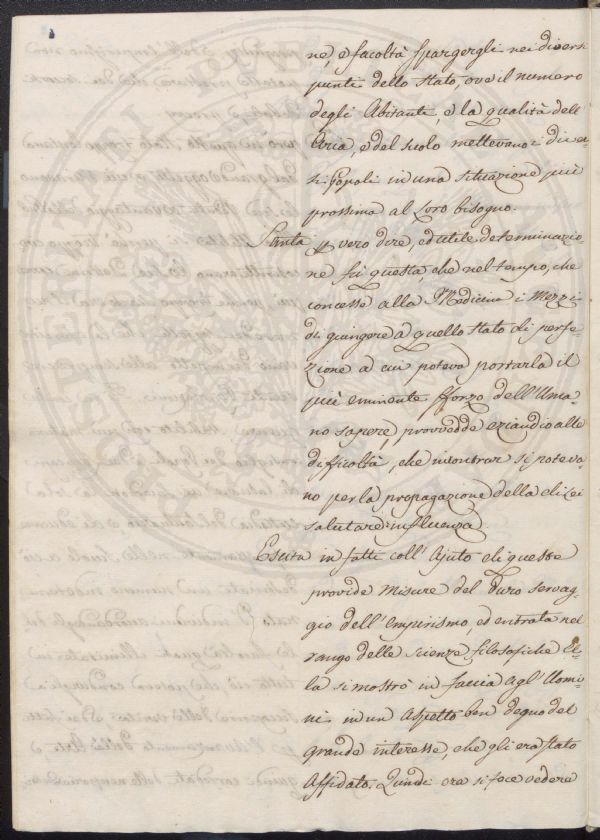 ne, e facoltà spargergli nei diversi
punti dello Stato, ove il numero
degli Abitanti, e la qualità dell'
Aria, e del suolo mettevano i diver-
si Popoli in una situazione più
prossima al loro bisogno.
Santa a vero dire, ed utile determinazio-
ne fù questa, che nel tempo, che
concesse alla Medicina i Mezzi
di giungere a quello stato di perfe-
zione a cui poteva portarla il
più eminente sforzo dell'Uma-
no sapere, provvedde eziandio alle
difficoltà, che incontrar si poteva-
no per la propagazione della di Lei
salutare influenza.
Escita in fatti coll'Ajuto di queste
provide Misure del duro servag-
gio dell'Empirismo, ed entrata nel
rango delle scienze filosofiche El-
la si mostrò in faccia agl'Uomi-
ni in un Aspetto ben degno del
grande interesse, che gli era stato
Affidato. Quindi ora si fece vedere